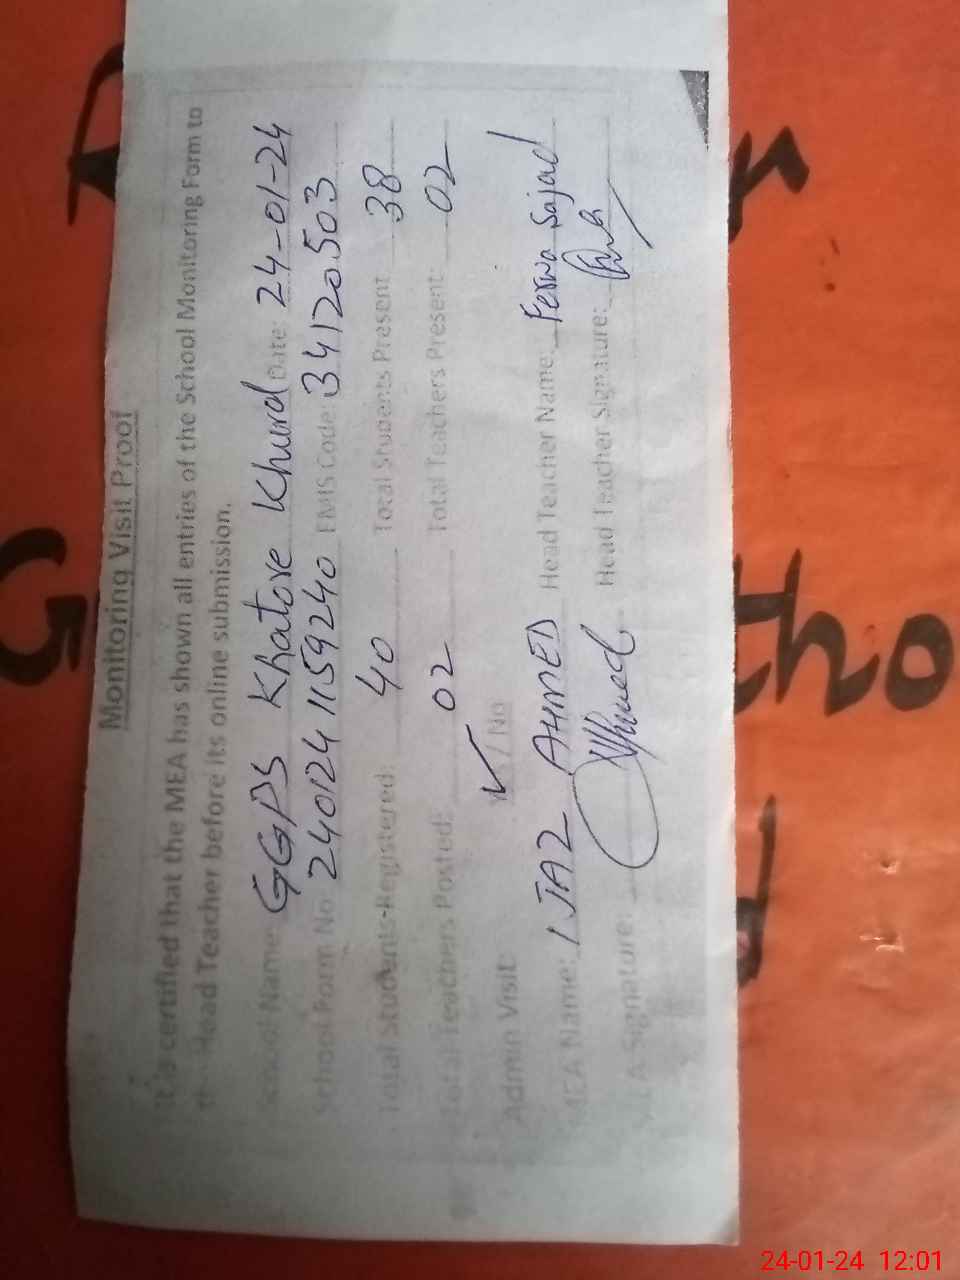 Monitoring Visit Proof
It is certified that the MEA has shown all entries of the School Monitoring Form to
the Head Teacher before its online submission.
School Name: GGPS Khatore Khurd Date: 24-01-24
School Form No 240124 1159240 EMIS Code: 34120503
Total Students Registered: 40 Total Students Present 38
Total Teachers Posted: 02 Total Teachers Present: 02
Admin Visit: / No
MEA Name: IJAZ AHMED Head Teacher Name: Ferwa Sajad
MEA Signature: Ahmed Head Teacher Signature:
24-01-24 12:01